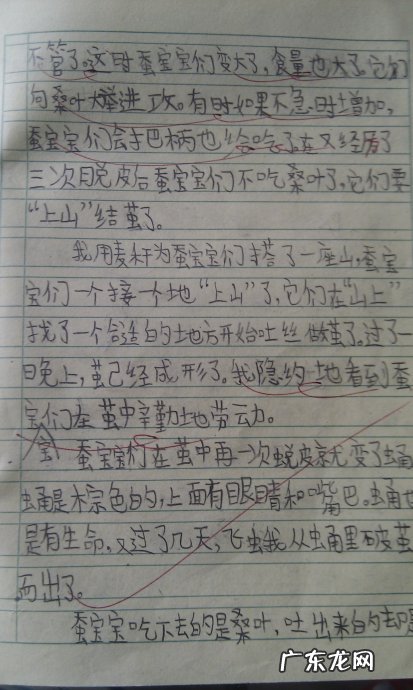 不管了。这时蚕宝宝们变大了，食量也大了。它们
向桑叶大举进攻。有时如果不急时增加，
蚕宝宝们会把柄也给吃了。在又经历了
三次脱皮后蚕宝宝们不吃桑叶了，它们要
“上山”结茧了。
我用麦杆为蚕宝宝们搭了一座山，蚕宝
宝们一个接一个地“上山”了，它们在“山上”
找了一个合适的地方开始吐丝做茧了。过了一
日晚上，茧已经成形了。我隐约地看到蚕
宝们在茧中辛勤地劳动。
蚕宝宝们在茧中再一次蜕皮就变了蛹
蛹是棕色的，上面有眼睛和嘴巴。蛹也
是有生命，又过了几天，飞虫我从蛹里破茧
而出了。
蚕宝宝吃下去的是桑叶，吐出来的却是
广东龙网